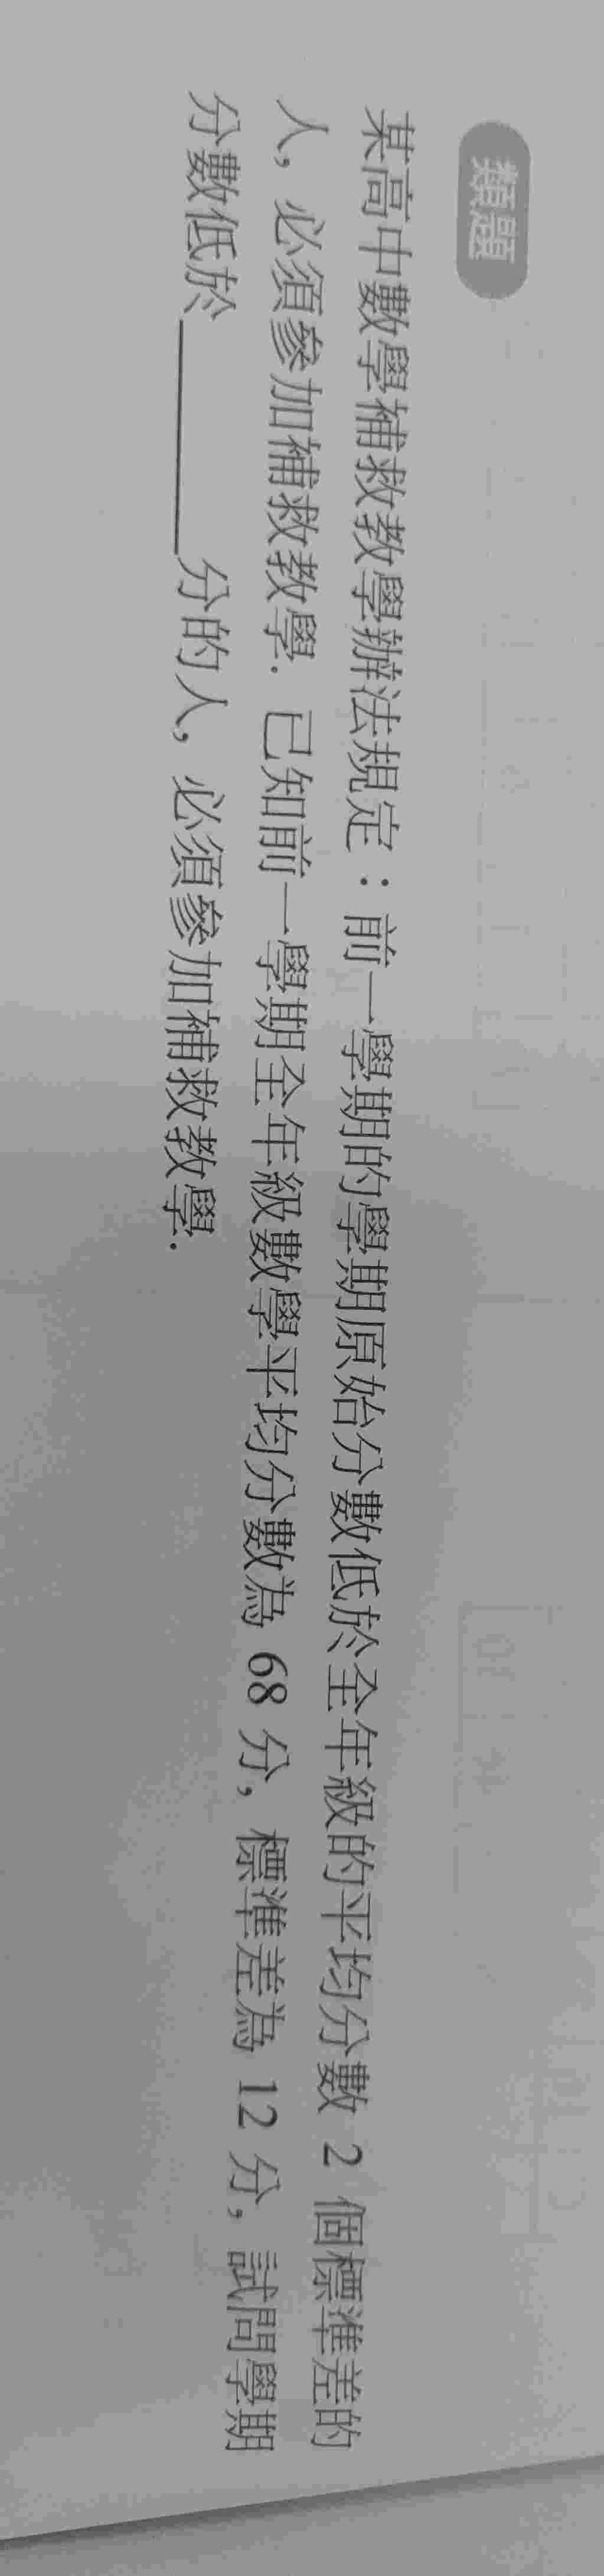 類題
某高中數學補救教學辦法規定：前一學期的學期原始分數低於全年級的平均分數 2 個標準差的
人，必須參加補救教學．已知前一學期全年級數學平均分數為 68 分，標準差為 12 分，試問學期
分數低於________分的人，必須參加補救教學．